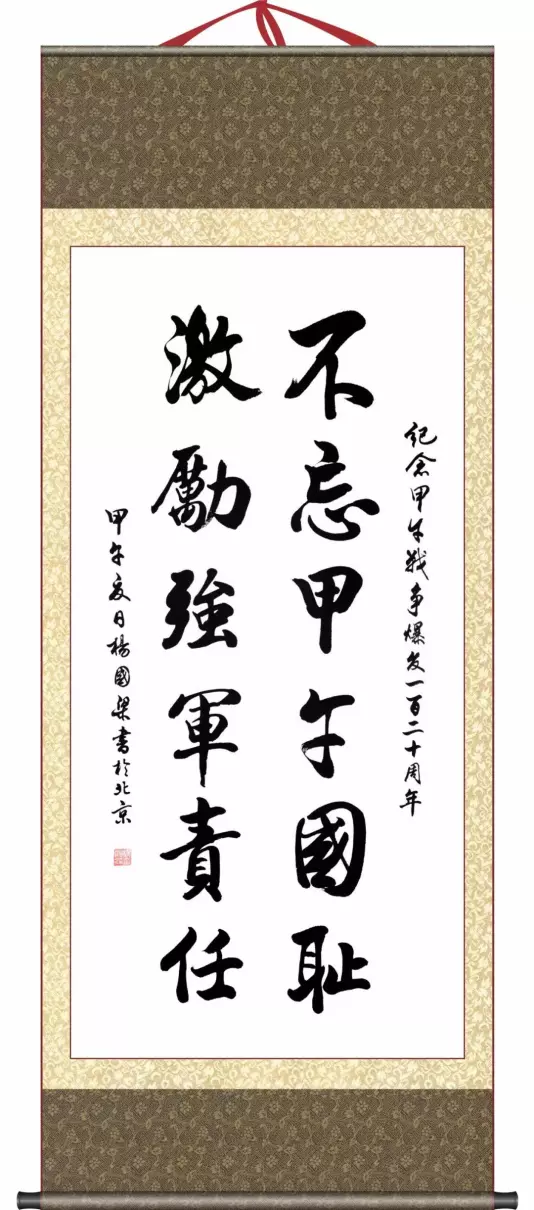 紀念甲午戰争爆发一百二十周年
不忘甲午國耻
激勵強軍責任
甲午夏日楊國梁書於北京